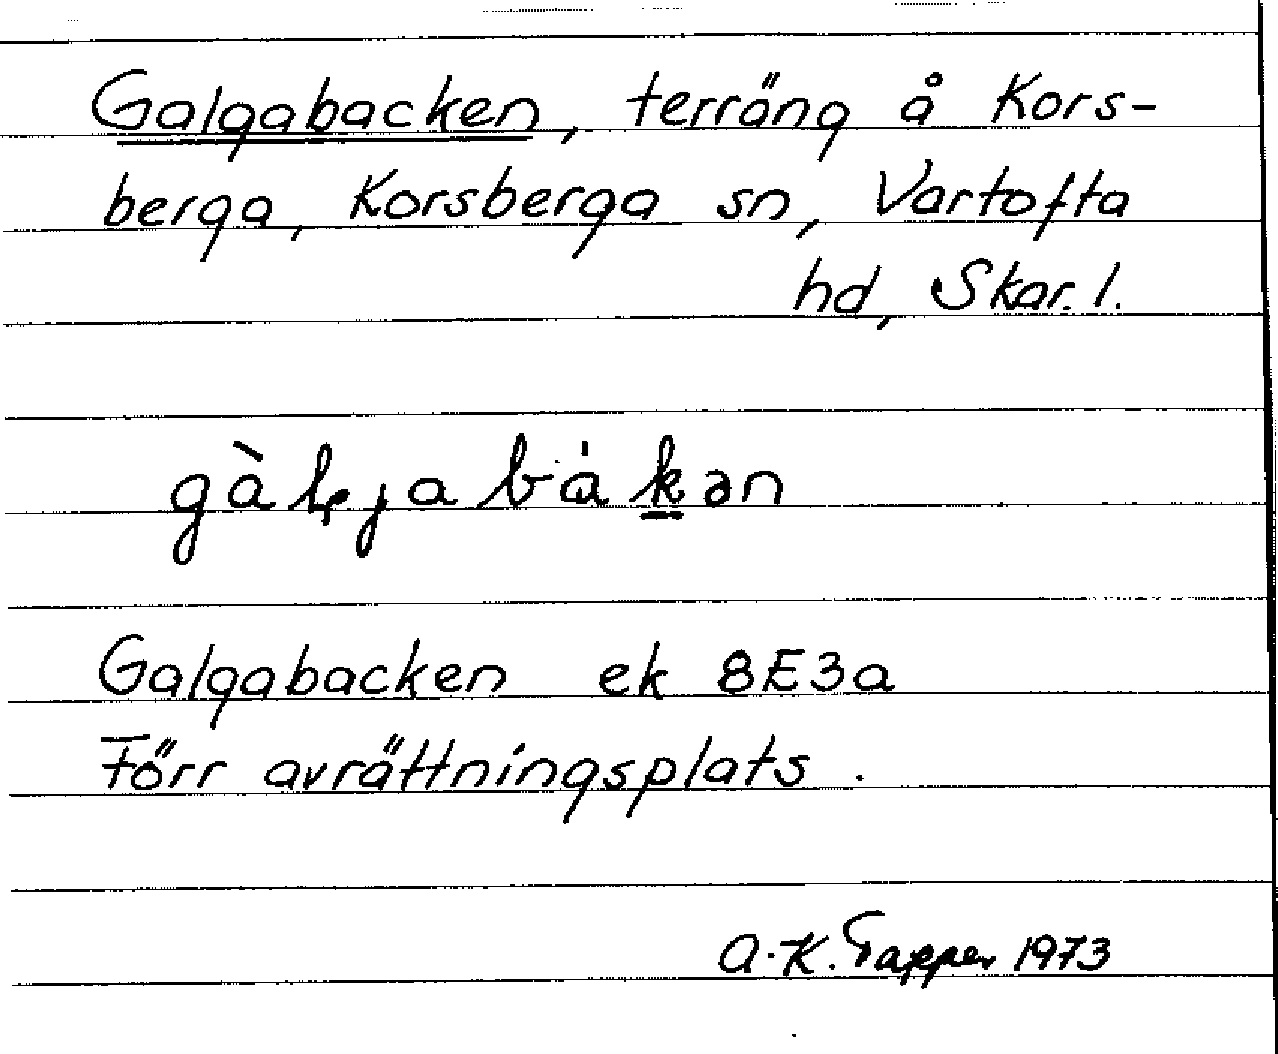 Galgabacken, terräng å Kors-
berga, Korsberga sn, Vartofta
hd, Skar. l.
gàɫɟabákən
Galgabacken ek 8E3a
Förr avrättningsplats.
A.-K. Tapper 1973